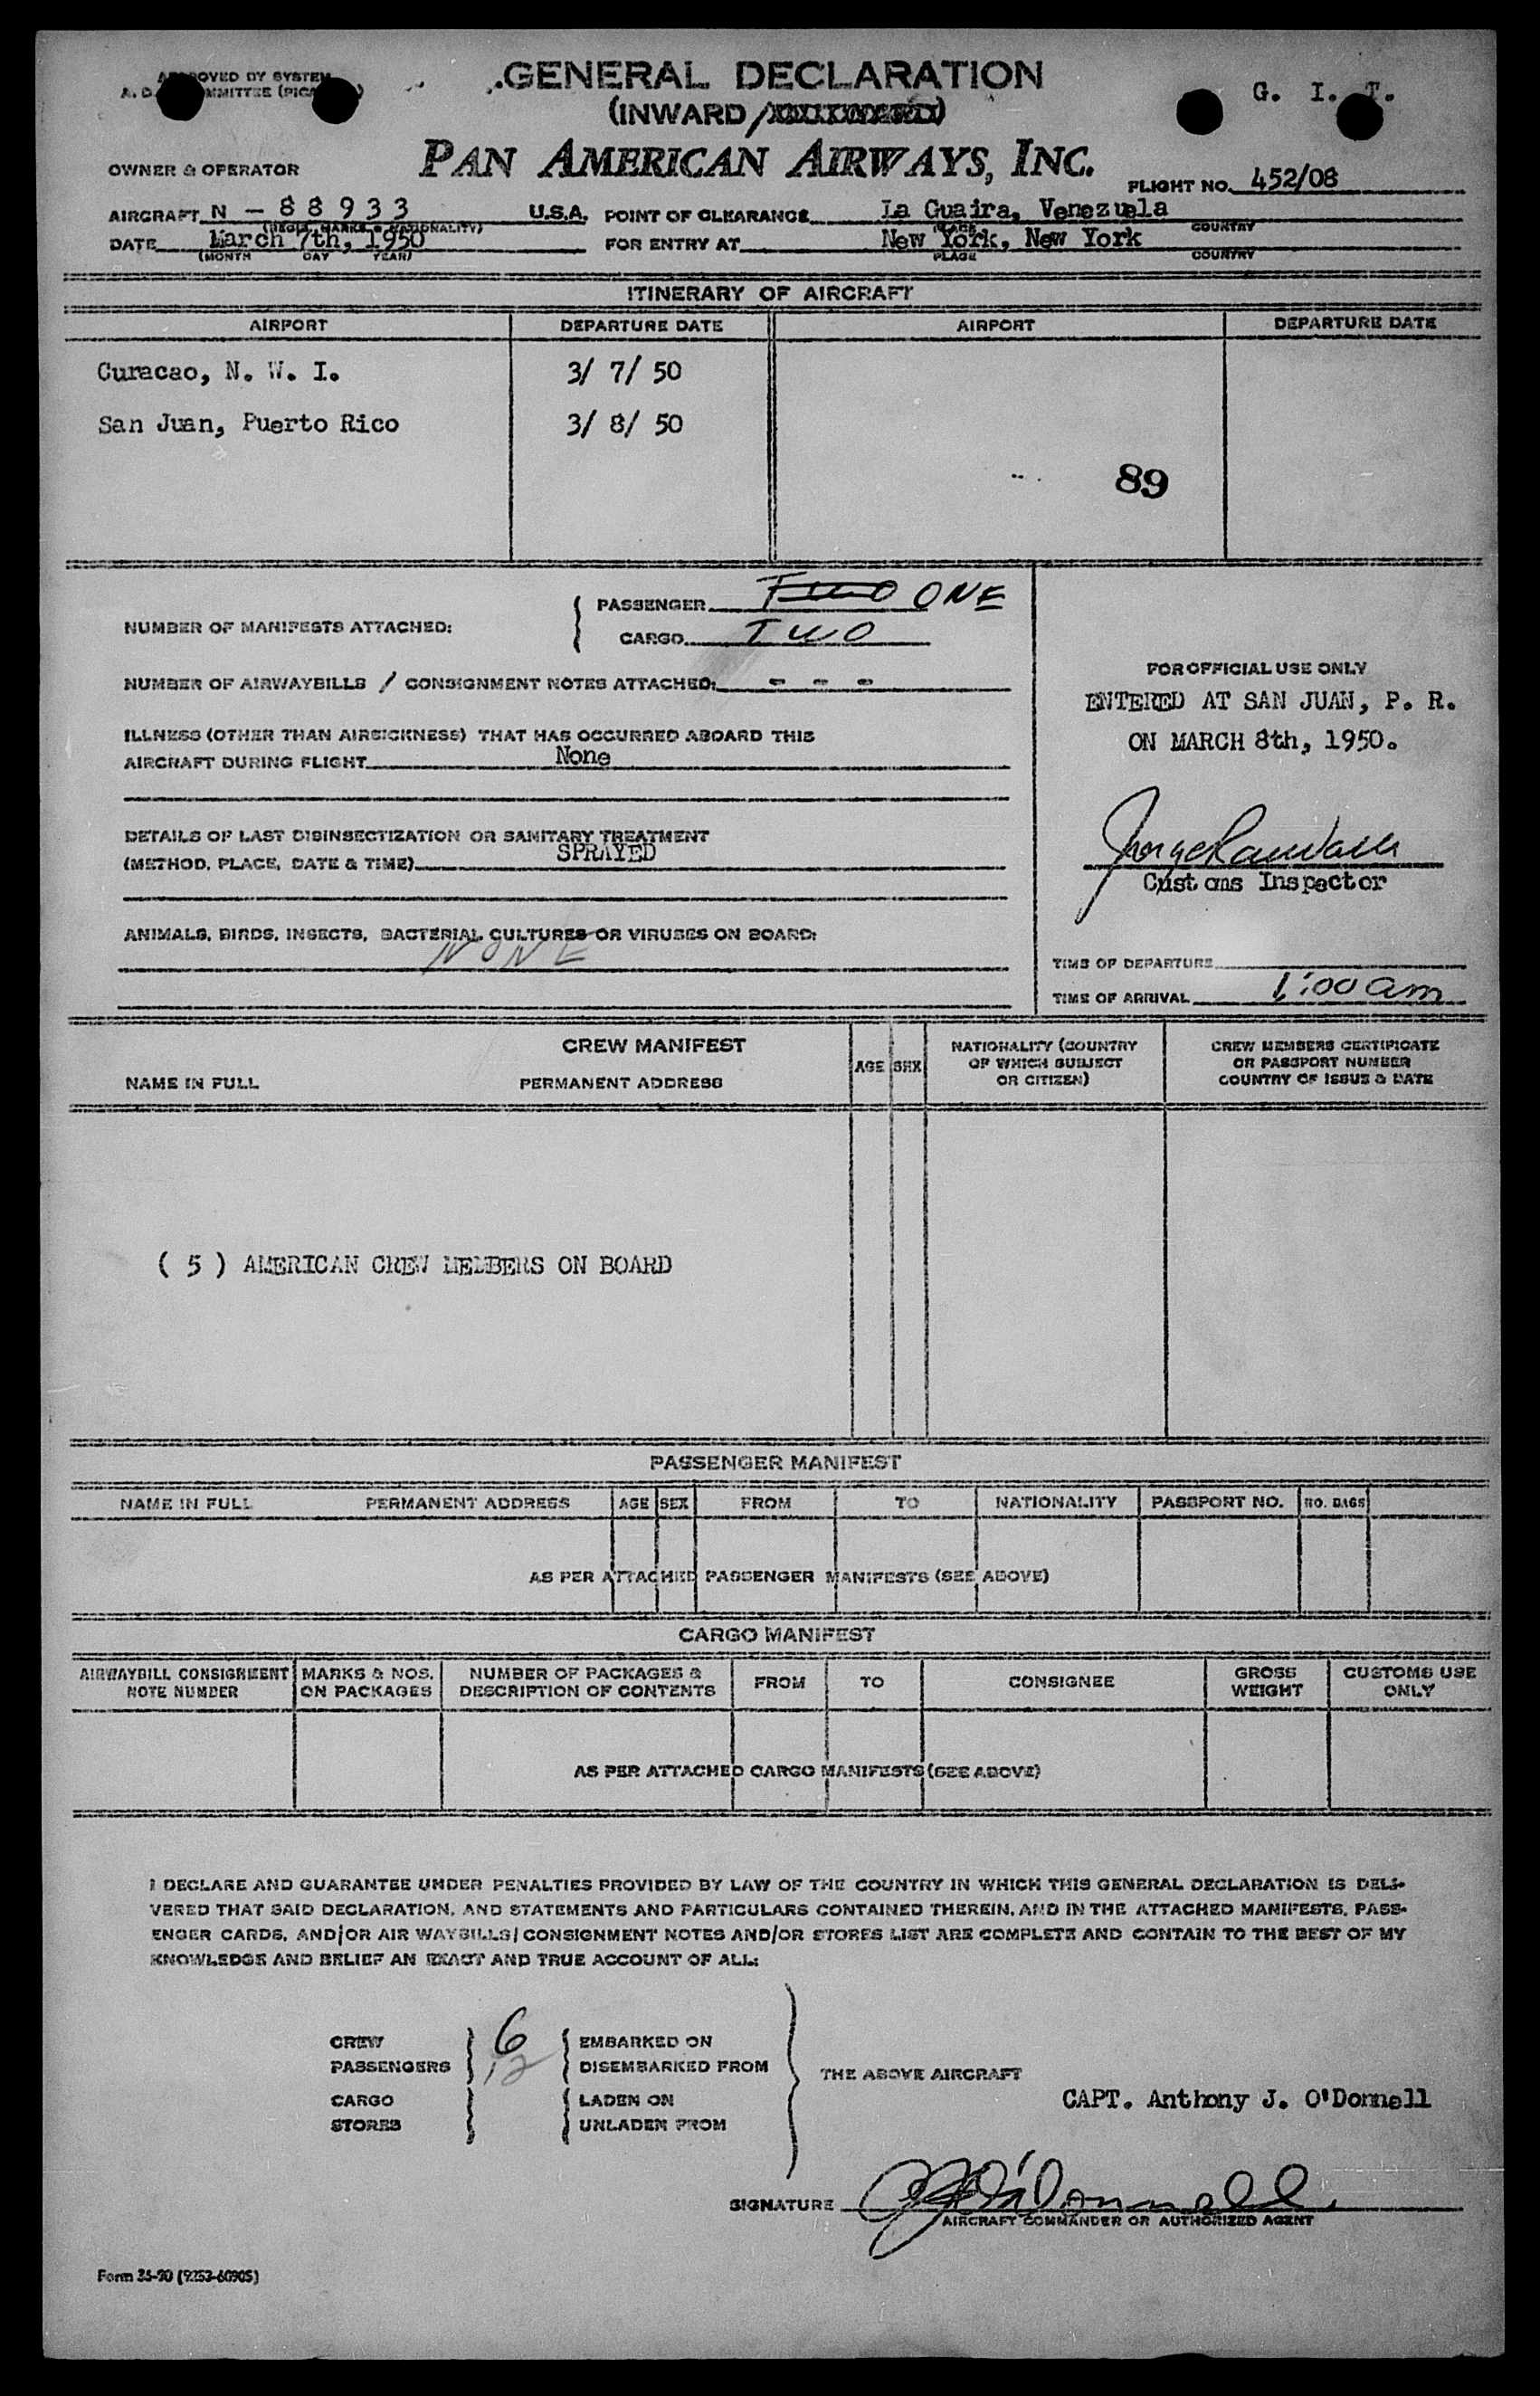 GENERAL DECLARATION
(INWARD/
G. I. T.
PAN AMERICAN AIRWAYS, INC.
OWNER & OPERATOR
FLIGHT NO. 452/08
AIRCRAFT N - 88933 U.S.A. POINT OF CLEARANCE La Guaira, Venezuela
(REGIS. MARKS & NATIONALITY) PLACE COUNTRY
DATE March 7th, 1950 FOR ENTRY AT New York, New York
(MONTH DAY YEAR) PLACE COUNTRY
ITINERARY OF AIRCRAFT
AIRPORT DEPARTURE DATE AIRPORT DEPARTURE DATE
Curacao, N. W. I. 3/ 7/ 50
San Juan, Puerto Rico 3/ 8/ 50
89
NUMBER OF MANIFESTS ATTACHED: PASSENGER Two ONE
CARGO TWO
NUMBER OF AIRWAYBILLS / CONSIGNMENT NOTES ATTACHED: - - -
ILLNESS (OTHER THAN AIRSICKNESS) THAT HAS OCCURRED ABOARD THIS
AIRCRAFT DURING FLIGHT None
DETAILS OF LAST DISINSECTIZATION OR SANITARY TREATMENT
(METHOD, PLACE, DATE & TIME) SPRAYED
ANIMALS, BIRDS, INSECTS, BACTERIAL CULTURES OR VIRUSES ON BOARD:
NONE
FOR OFFICIAL USE ONLY
ENTERED AT SAN JUAN, P. R.
ON MARCH 8th, 1950.
Customs Inspector
TIME OF DEPARTURE
TIME OF ARRIVAL 1:00 am
CREW MANIFEST
NAME IN FULL PERMANENT ADDRESS AGE SEX NATIONALITY (COUNTRY OF WHICH SUBJECT OR CITIZEN) CREW MEMBERS CERTIFICATE OR PASSPORT NUMBER COUNTRY OF ISSUE & DATE
( 5 ) AMERICAN CREW MEMBERS ON BOARD
PASSENGER MANIFEST
NAME IN FULL PERMANENT ADDRESS AGE SEX FROM TO NATIONALITY PASSPORT NO. NO. BAGS
AS PER ATTACHED PASSENGER MANIFESTS (SEE ABOVE)
CARGO MANIFEST
AIRWAYBILL CONSIGNMENT NOTE NUMBER MARKS & NOS. ON PACKAGES NUMBER OF PACKAGES & DESCRIPTION OF CONTENTS FROM TO CONSIGNEE GROSS WEIGHT CUSTOMS USE ONLY
AS PER ATTACHED CARGO MANIFESTS (SEE ABOVE)
I DECLARE AND GUARANTEE UNDER PENALTIES PROVIDED BY LAW OF THE COUNTRY IN WHICH THIS GENERAL DECLARATION IS DELI-
VERED THAT SAID DECLARATION, AND STATEMENTS AND PARTICULARS CONTAINED THEREIN, AND IN THE ATTACHED MANIFESTS, PASS-
ENGER CARDS, AND/OR AIR WAYBILLS/CONSIGNMENT NOTES AND/OR STORES LIST ARE COMPLETE AND CONTAIN TO THE BEST OF MY
KNOWLEDGE AND BELIEF AN EXACT AND TRUE ACCOUNT OF ALL:
CREW 6 EMBARKED ON
PASSENGERS 12 DISEMBARKED FROM
THE ABOVE AIRCRAFT
CARGO LADEN ON
STORES UNLADEN FROM
CAPT. Anthony J. O'Donnell
SIGNATURE AJ O'Donnell
AIRCRAFT COMMANDER OR AUTHORIZED AGENT
Form 35-90 (9253-60905)